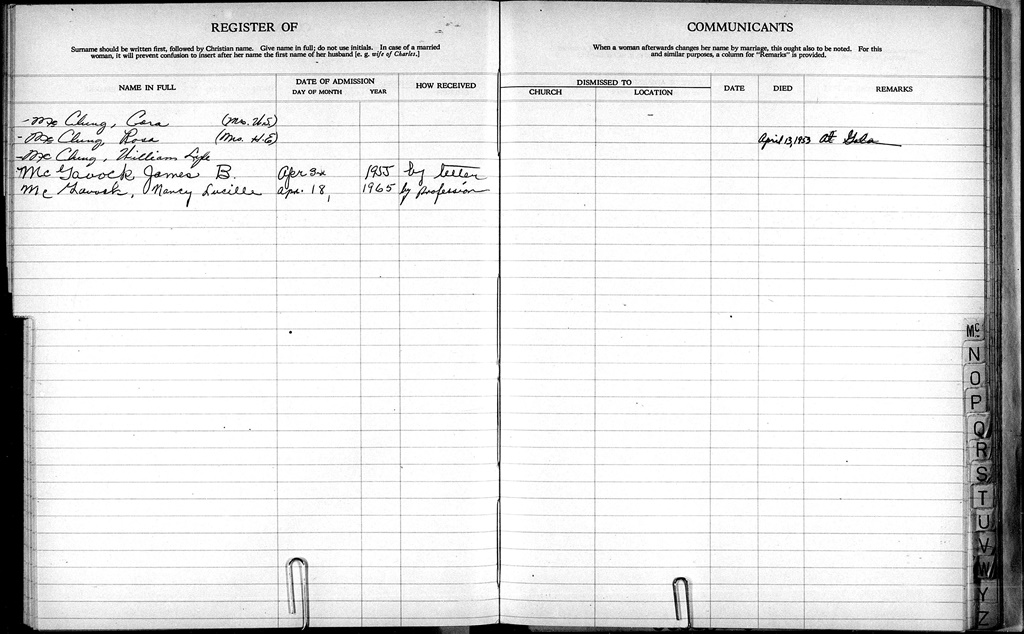 REGISTER OF
Surname should be written first, followed by Christian name. Give name in full; do not use initials. In case of a married
woman, it will prevent confusion to insert after her name the first name of her husband [e. g. wife of Charles.]
NAME IN FULL
DATE OF ADMISSION
DAY OF MONTH YEAR
HOW RECEIVED
Mc Clung, Cora (Mrs.
Mc Clung, Rosa (Mrs. H.E)
Mc Clung, William
Mc Gavock James B. Apr 1955 by letter
Mc Gavock, Nancy Lucille Apr. 18, 1965 by Profession
COMMUNICANTS
When a woman afterwards changes her name by marriage, this ought also to be noted. For this
and similar purposes, a column for "Remarks" is provided.
DISMISSED TO
CHURCH LOCATION
DATE
DIED
REMARKS
April 13, 1953 At
Mc
N
O
P
Q
R
S
T
U
V
W
Y
Z